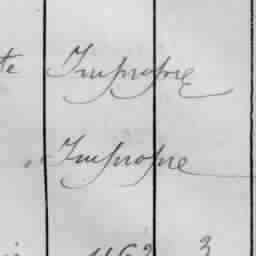 te Impropre
Impropre
1162 3